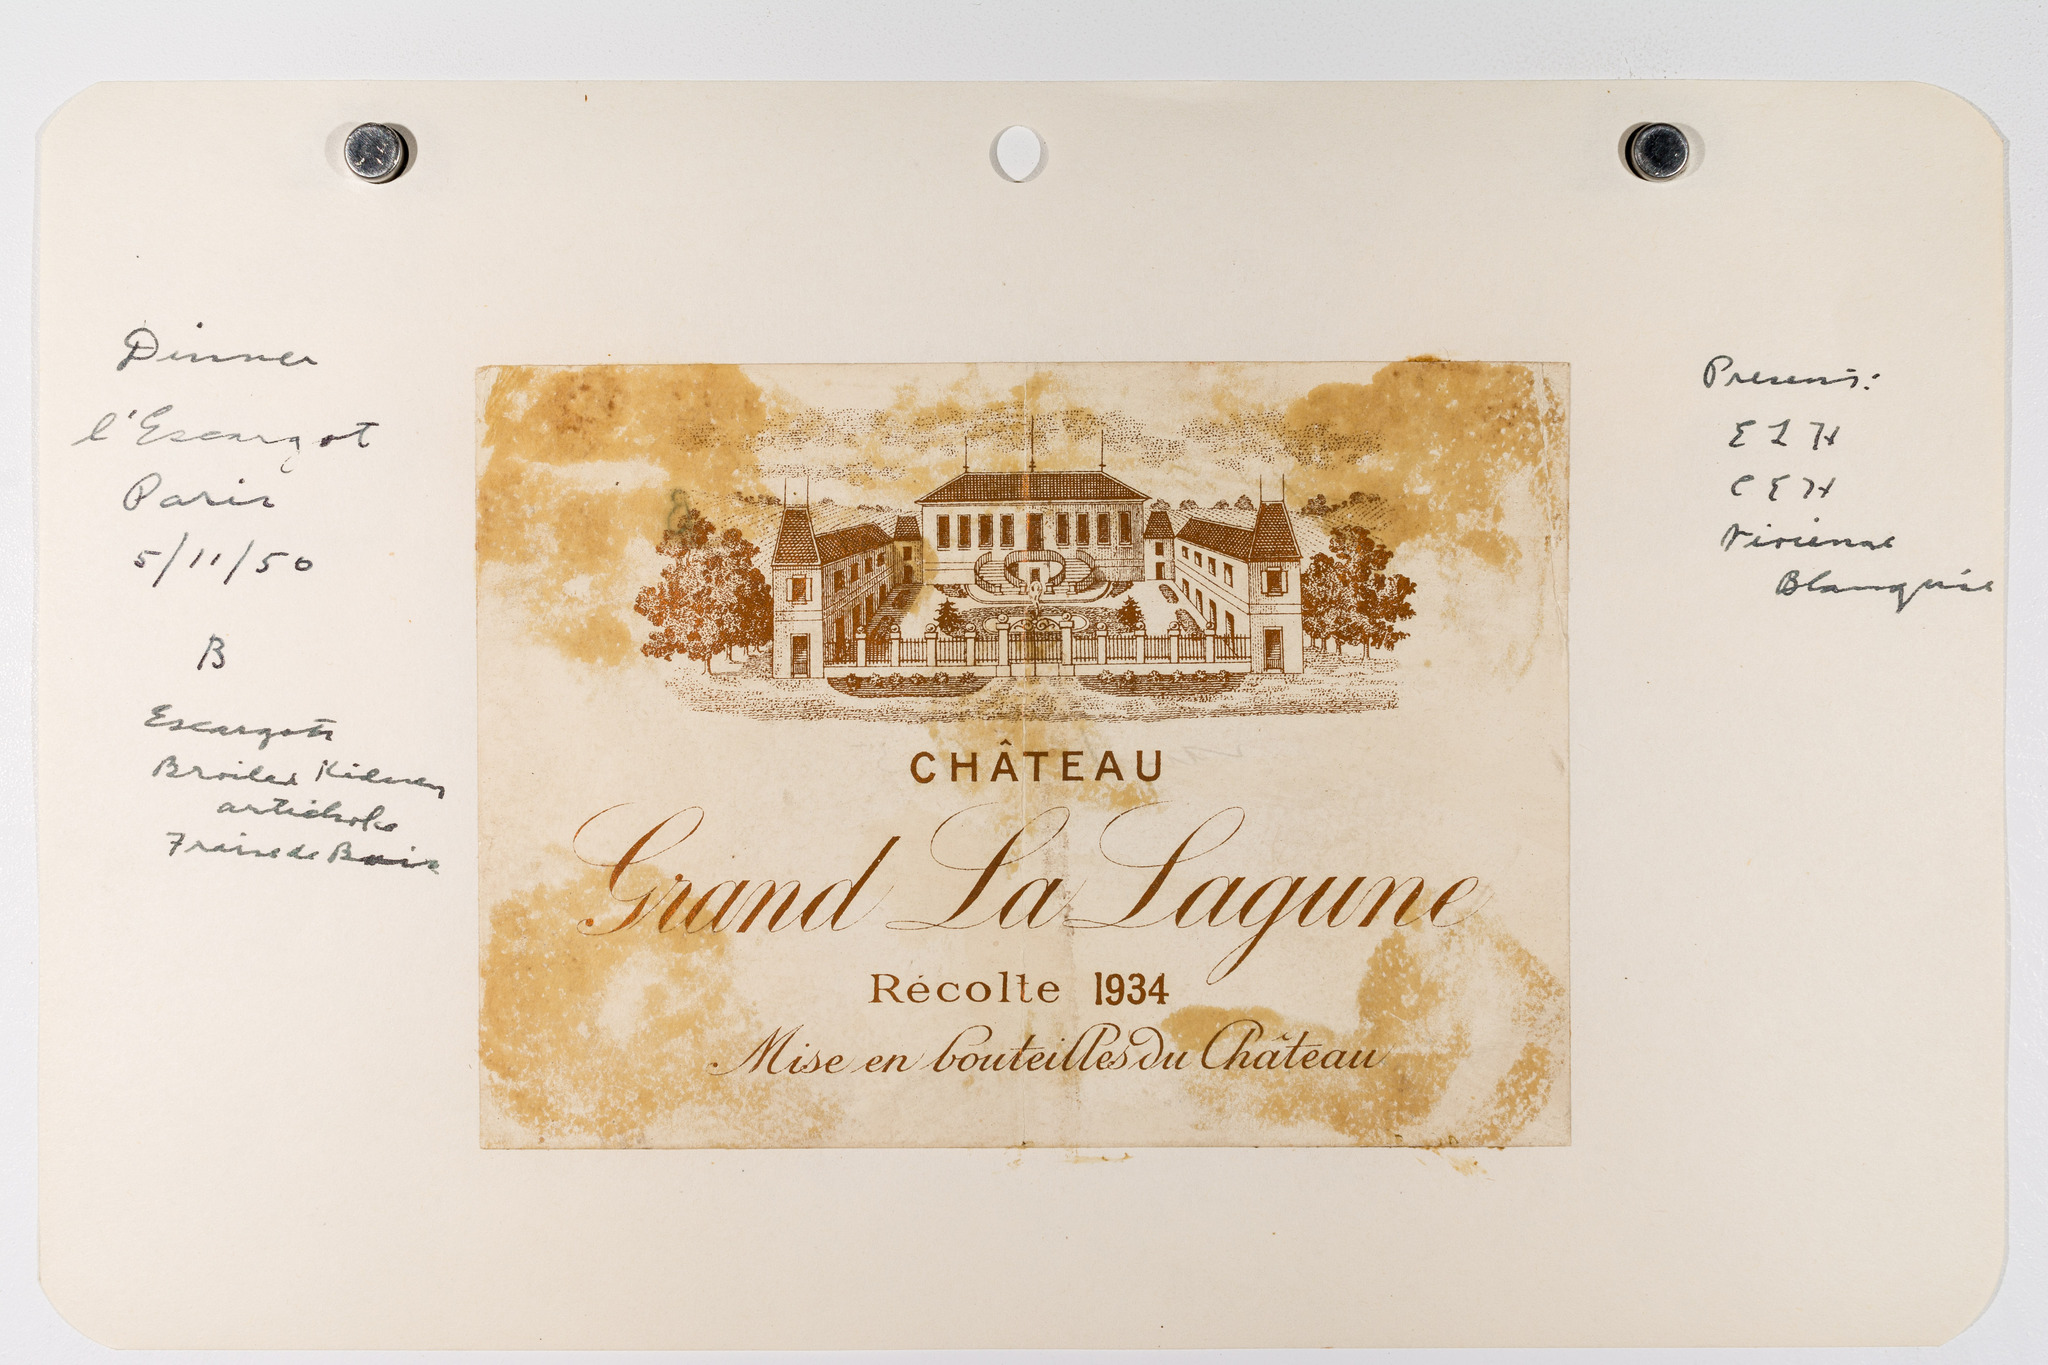 Dinner
l'Escargot
Paris
5/11/50
B
Escargots
Broiled Kidney
artichoke
Fraise de Bois
CHÂTEAU
Grand La Lagune
Récolte 1934
Mise en bouteilles du Château
Present:
E L H
C E H
Vivienne